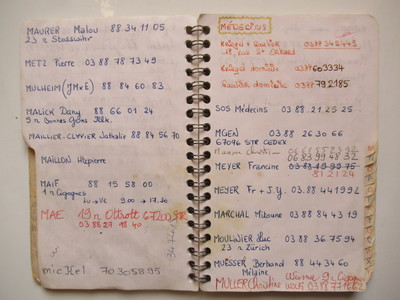 MAURER Malou 88 34 11 05
23 r Stosswihr
METZ Pierre 03 88 78 73 49
MULHEIM (JM & E) 88 84 60 83
MALICK Dany 88 66 01 24
9 r Bonnes Gens Illk.
MAILLIER-CLAVIER Nathalie 88 84 56 70
MAILLON Hépierre
MAIF 88 15 58 00
1 r Cigognes
Lu → Ve 9.00 → 17.30
MAE 19 r Ottrott 67200 STR
03 88 27 18 40
michel 70 30 58 95
MEDECINS
0388343443
18, rue St
Kriegel domicile 0388603334
domicile 0388792185
SOS Médecins 03.88.21.25.25
MGEN 03 88 26 30 66
67096 STR CEDEX
06 83 99 48 32
MEYER Francine 03.88.19.90.75
81 21 24
MEYER Fr + J.Y. 03.88 44 19 92
MARCHAL Miloune 03 88 84 43 19
MOULINIER Luc 03 88 36 75 94
23 r Zürich
MUESSER Bertrand 88 44 34 60
MULLER Christine 03 88 77